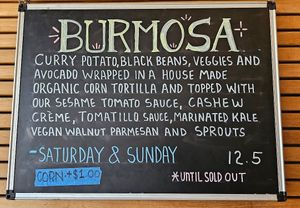 BURMOSA
CURRY POTATO, BLACK BEANS, VEGGIES AND
AVOCADO WRAPPED IN A HOUSE MADE
ORGANIC CORN TORTILLA AND TOPPED WITH
OUR SESAME TOMATO SAUCE, CASHEW
CRÈME, TOMATILLO SAUCE, MARINATED KALE
VEGAN WALNUT PARMESAN AND SPROUTS
-SATURDAY & SUNDAY 12.5
CORN +$1.00 *UNTIL SOLD OUT